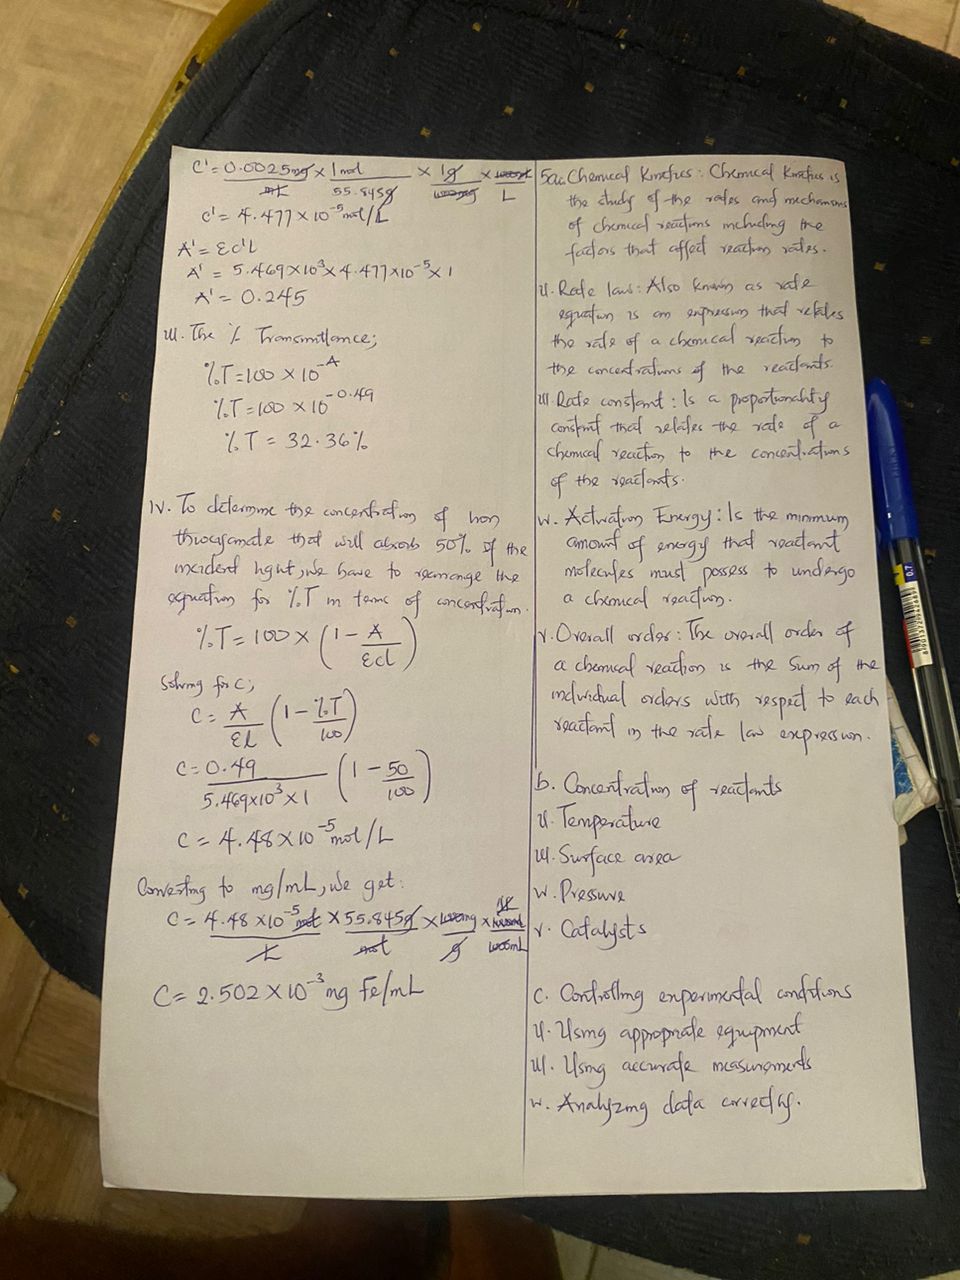 C' = 0.0025mg × 1mol × 1g × 1000mL
mL 55.845g 1000mg L
C' = 4.477 × 10⁻⁵mol/L
A' = εc'L
A' = 5.469×10³ × 4.477×10⁻⁵ × 1
A' = 0.245
iii. The % Transmittance;
%T = 100 × 10^-A
%T = 100 × 10^-0.49
%T = 32.36%
iv. To determine the concentration of iron
thiocyanate that will absorb 50% of the
incident light, we have to rearrange the
equation for %T in terms of concentration.
%T = 100 × (1 - A/εcl)
Solving for C;
C = A/εl (1 - %T/100)
C = 0.49/5.469×10³×1 (1 - 50/100)
C = 4.48 × 10⁻⁵mol/L
Converting to mg/mL, we get:
C = 4.48 × 10⁻⁵mol × 55.845g × 1000mg ×
L mol g 1000mL
C = 2.502 × 10⁻³mg Fe/mL
5ai. Chemical Kinetics: Chemical Kinetics is
the study of the rates and mechanisms
of chemical reactions including the
factors that affect reaction rates.
ii. Rate law: Also known as rate
equation is an expression that relates
the rate of a chemical reaction to
the concentrations of the reactants.
iii. Rate constant: Is a proportionality
constant that relates the rate of a
chemical reaction to the concentrations
of the reactants.
iv. Activation Energy: Is the minimum
amount of energy that reactant
molecules must possess to undergo
a chemical reaction.
v. Overall order: The overall order of
a chemical reaction is the sum of the
individual orders with respect to each
reactant in the rate law expression.
b. Concentration of reactants
ii. Temperature
iii. Surface area
iv. Pressure
v. Catalysts
c. Controlling experimental conditions
ii. Using appropriate equipment
iii. Using accurate measurements
iv. Analyzing data correctly.
0.7